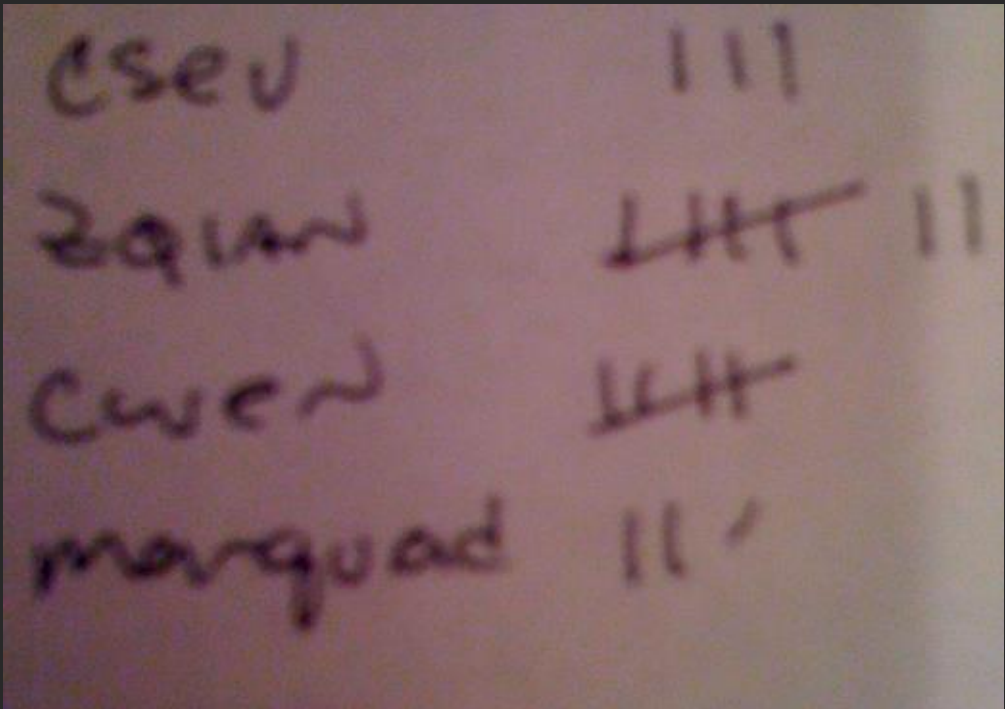 csev III
zqian IIII II
cwen IIII
marquad II '